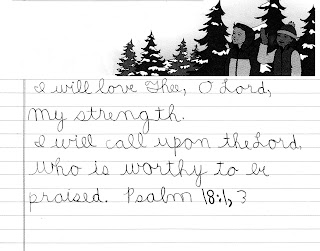 I will love Thee, O Lord,
my strength.
I will call upon the Lord,
who is worthy to be
praised. Psalm 18:1, 3